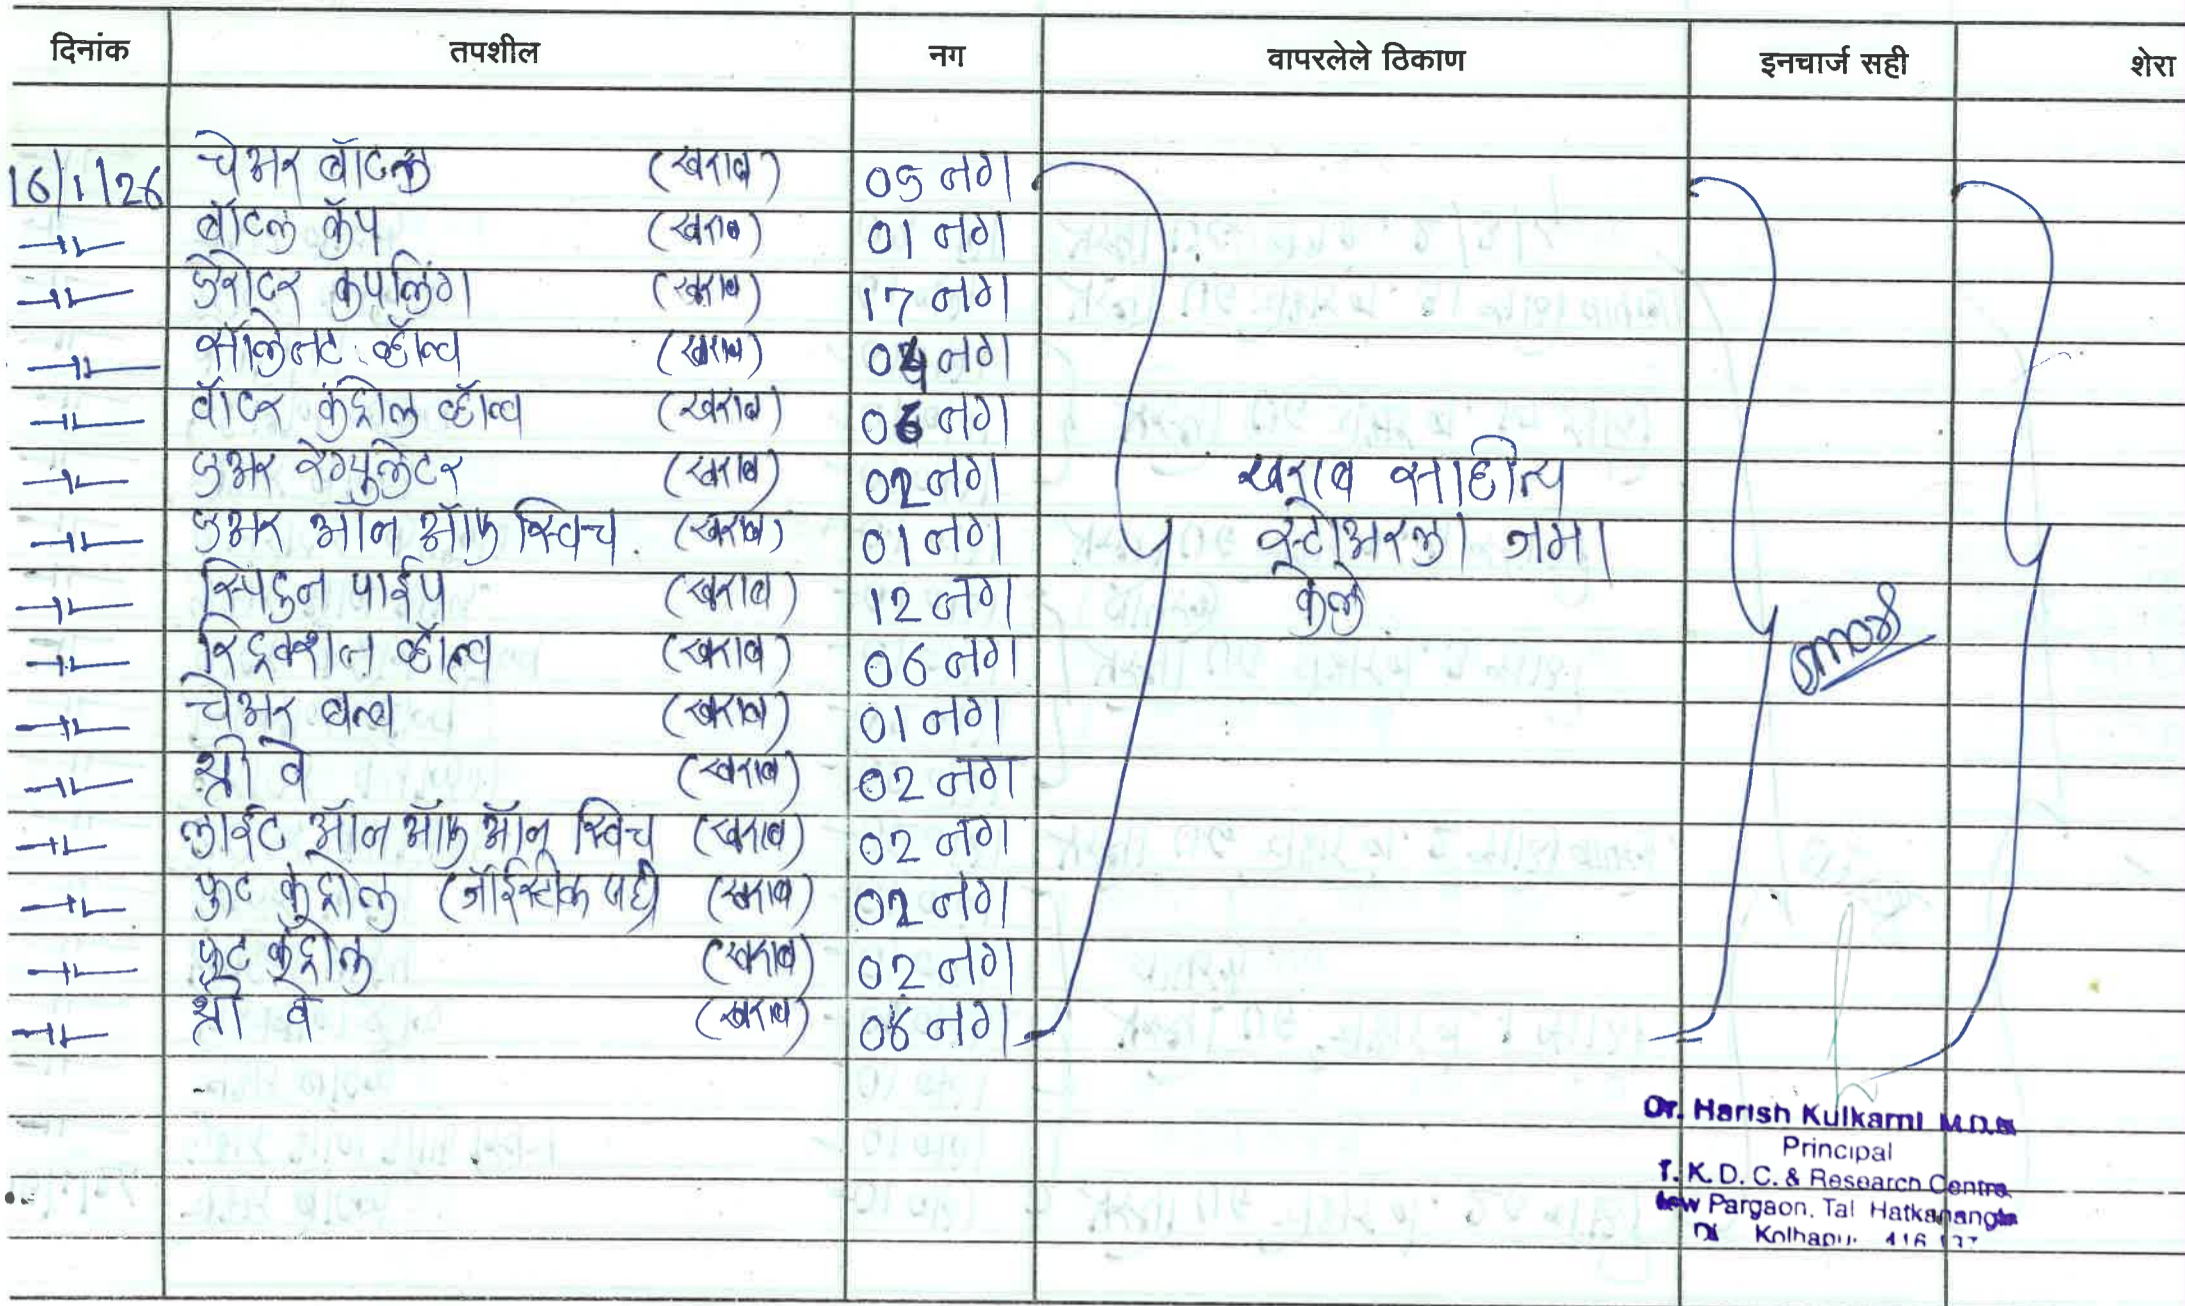 दिनांक तपशील नग वापरलेले ठिकाण इनचार्ज सही शेरा
16/1/26 चेअर बॉटल (खराब) 05 नग
–॥– बॉटल कॅप (खराब) 01 नग
–॥– केरोटर कपलिंग (खराब) 17 नग
–॥– सॉलेनट व्हॉल्व (खराब) 04 नग
–॥– वॉटर कंट्रोल व्हॉल्व (खराब) 06 नग
–॥– एअर रेग्युलेटर (खराब) 02 नग
खराब साहीत्य
–॥– एअर ऑन ऑफ स्विच (खराब) 01 नग
स्टोअरला जमा
–॥– स्पिटुन पाईप (खराब) 12 नग
केले.
–॥– रिडक्शन व्हॉल्व (खराब) 06 नग
–॥– चेअर बल्ब (खराब) 01 नग
–॥– थ्री वे (खराब) 02 नग
–॥– लाईट ऑन ऑफ ऑन स्विच (खराब) 02 नग
–॥– फुट कंट्रोल (जॉईस्टीक पट्टी) (खराब) 02 नग
–॥– फुट कंट्रोल (खराब) 02 नग
–॥– थ्री वे (खराब) 06 नग
Dr. Harish Kulkarni M.D.S
Principal
T. K. D. C. & Research Centre
New Pargaon, Tal Hatkanangle
Di Kolhapur 416 137